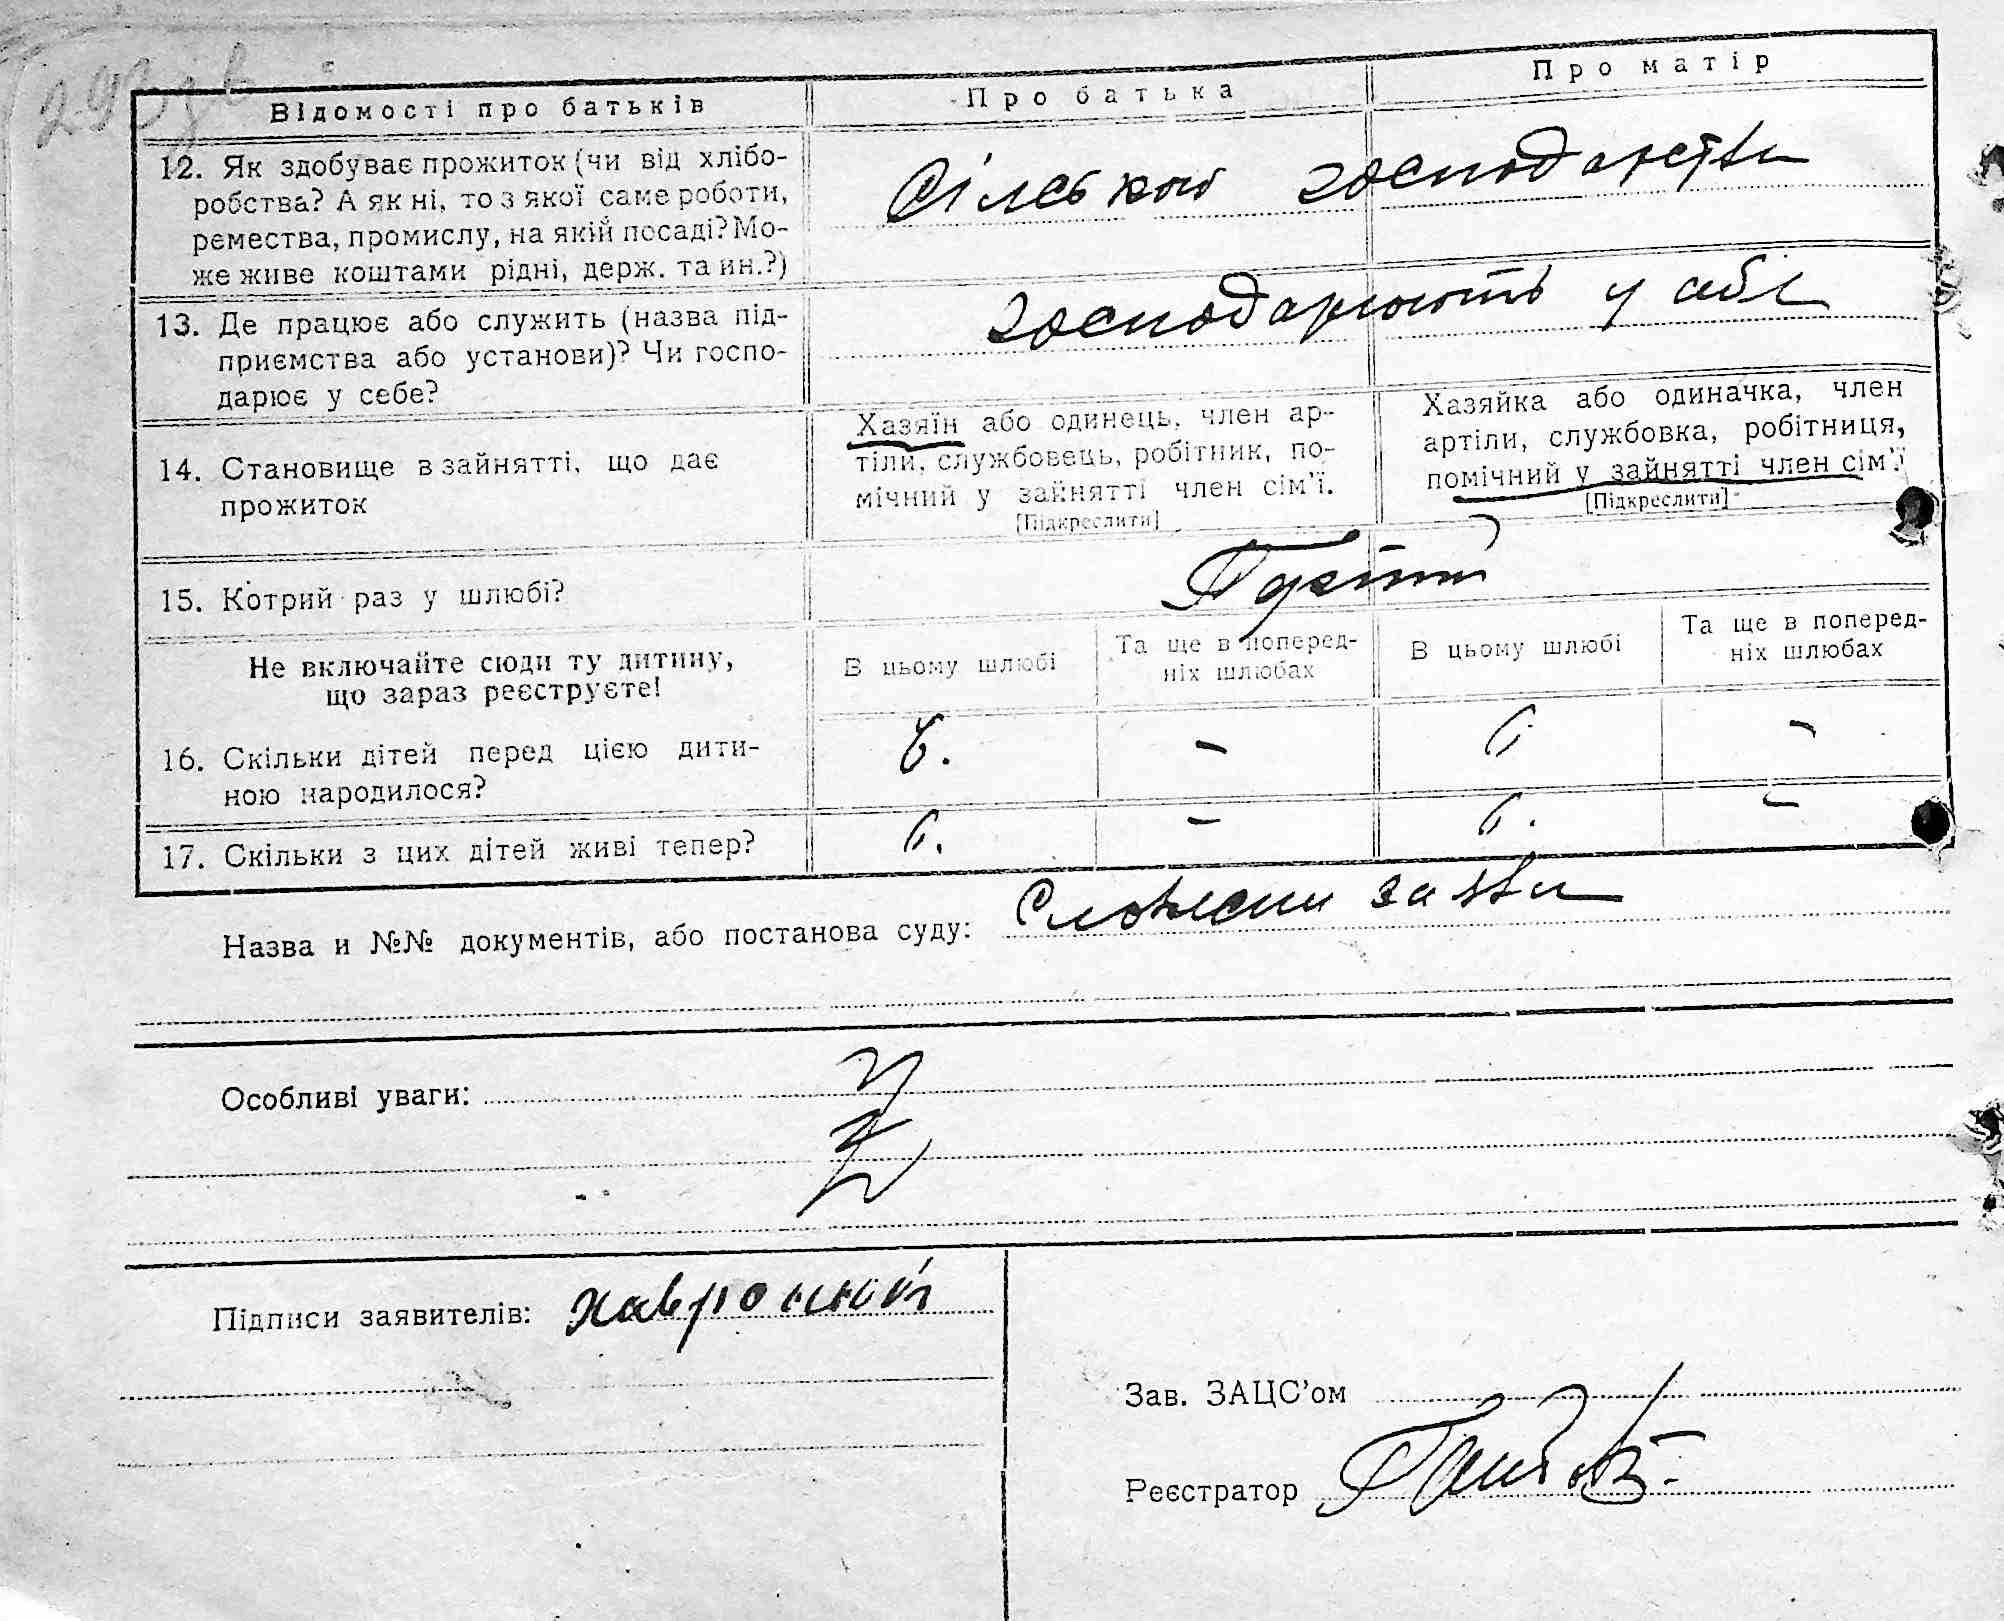 293зв
Відомості про батьків
Про батька
Про матір
12. Як здобуває прожиток (чи від хлібо-
робства? А як ні, то з якої саме роботи,
ремества, промислу, на якій посаді? Мо-
же живе коштами рідні, держ. та ин.?)
Сільське господарство
13. Де працює або служить (назва під-
приємства або установи)? Чи госпо-
дарює у себе?
господарюють у себе
14. Становище в зайнятті, що дає
прожиток
Хазяїн або одинець, член ар-
тіли, службовець, робітник, по-
мічний у зайнятті член сім'ї.
[Підкреслити]
Хазяйка або одиначка, член
артіли, службовка, робітниця,
помічний у зайнятті член сім'ї
[Підкреслити]
15. Котрий раз у шлюбі?
Не включайте сюди ту дитину,
що зараз реєструєте!
В цьому шлюбі
Та ще в поперед-
ніх шлюбах
В цьому шлюбі
Та ще в поперед-
ніх шлюбах
16. Скільки дітей перед цією дити-
ною народилося?
6. – 6 –
17. Скільки з цих дітей живі тепер?
6. – 6. –
Назва и №№ документів, або постанова суду: Словесна заява
Особливі уваги:
Підписи заявителів: Хавронин
Зав. ЗАЦС'ом
Реєстратор